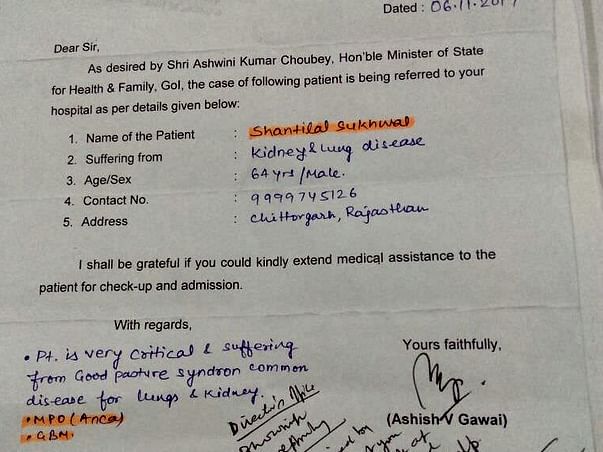 Dated : 06.11.2017
Dear Sir,
As desired by Shri Ashwini Kumar Choubey, Hon'ble Minister of State
for Health & Family, GoI, the case of following patient is being referred to your
hospital as per details given below:
1. Name of the Patient : Shantilal Sukhwal
2. Suffering from : Kidney & lung disease
3. Age/Sex : 64 yrs / Male.
4. Contact No. : 9999745126
5. Address : Chittorgarh, Rajasthan
I shall be grateful if you could kindly extend medical assistance to the
patient for check-up and admission.
With regards,
Yours faithfully,
• Pt. is very critical & suffering
from Good pasture syndron common
disease for lungs & Kidney.
• MPO (Anca)
• GBM.
(Ashish V Gawai)